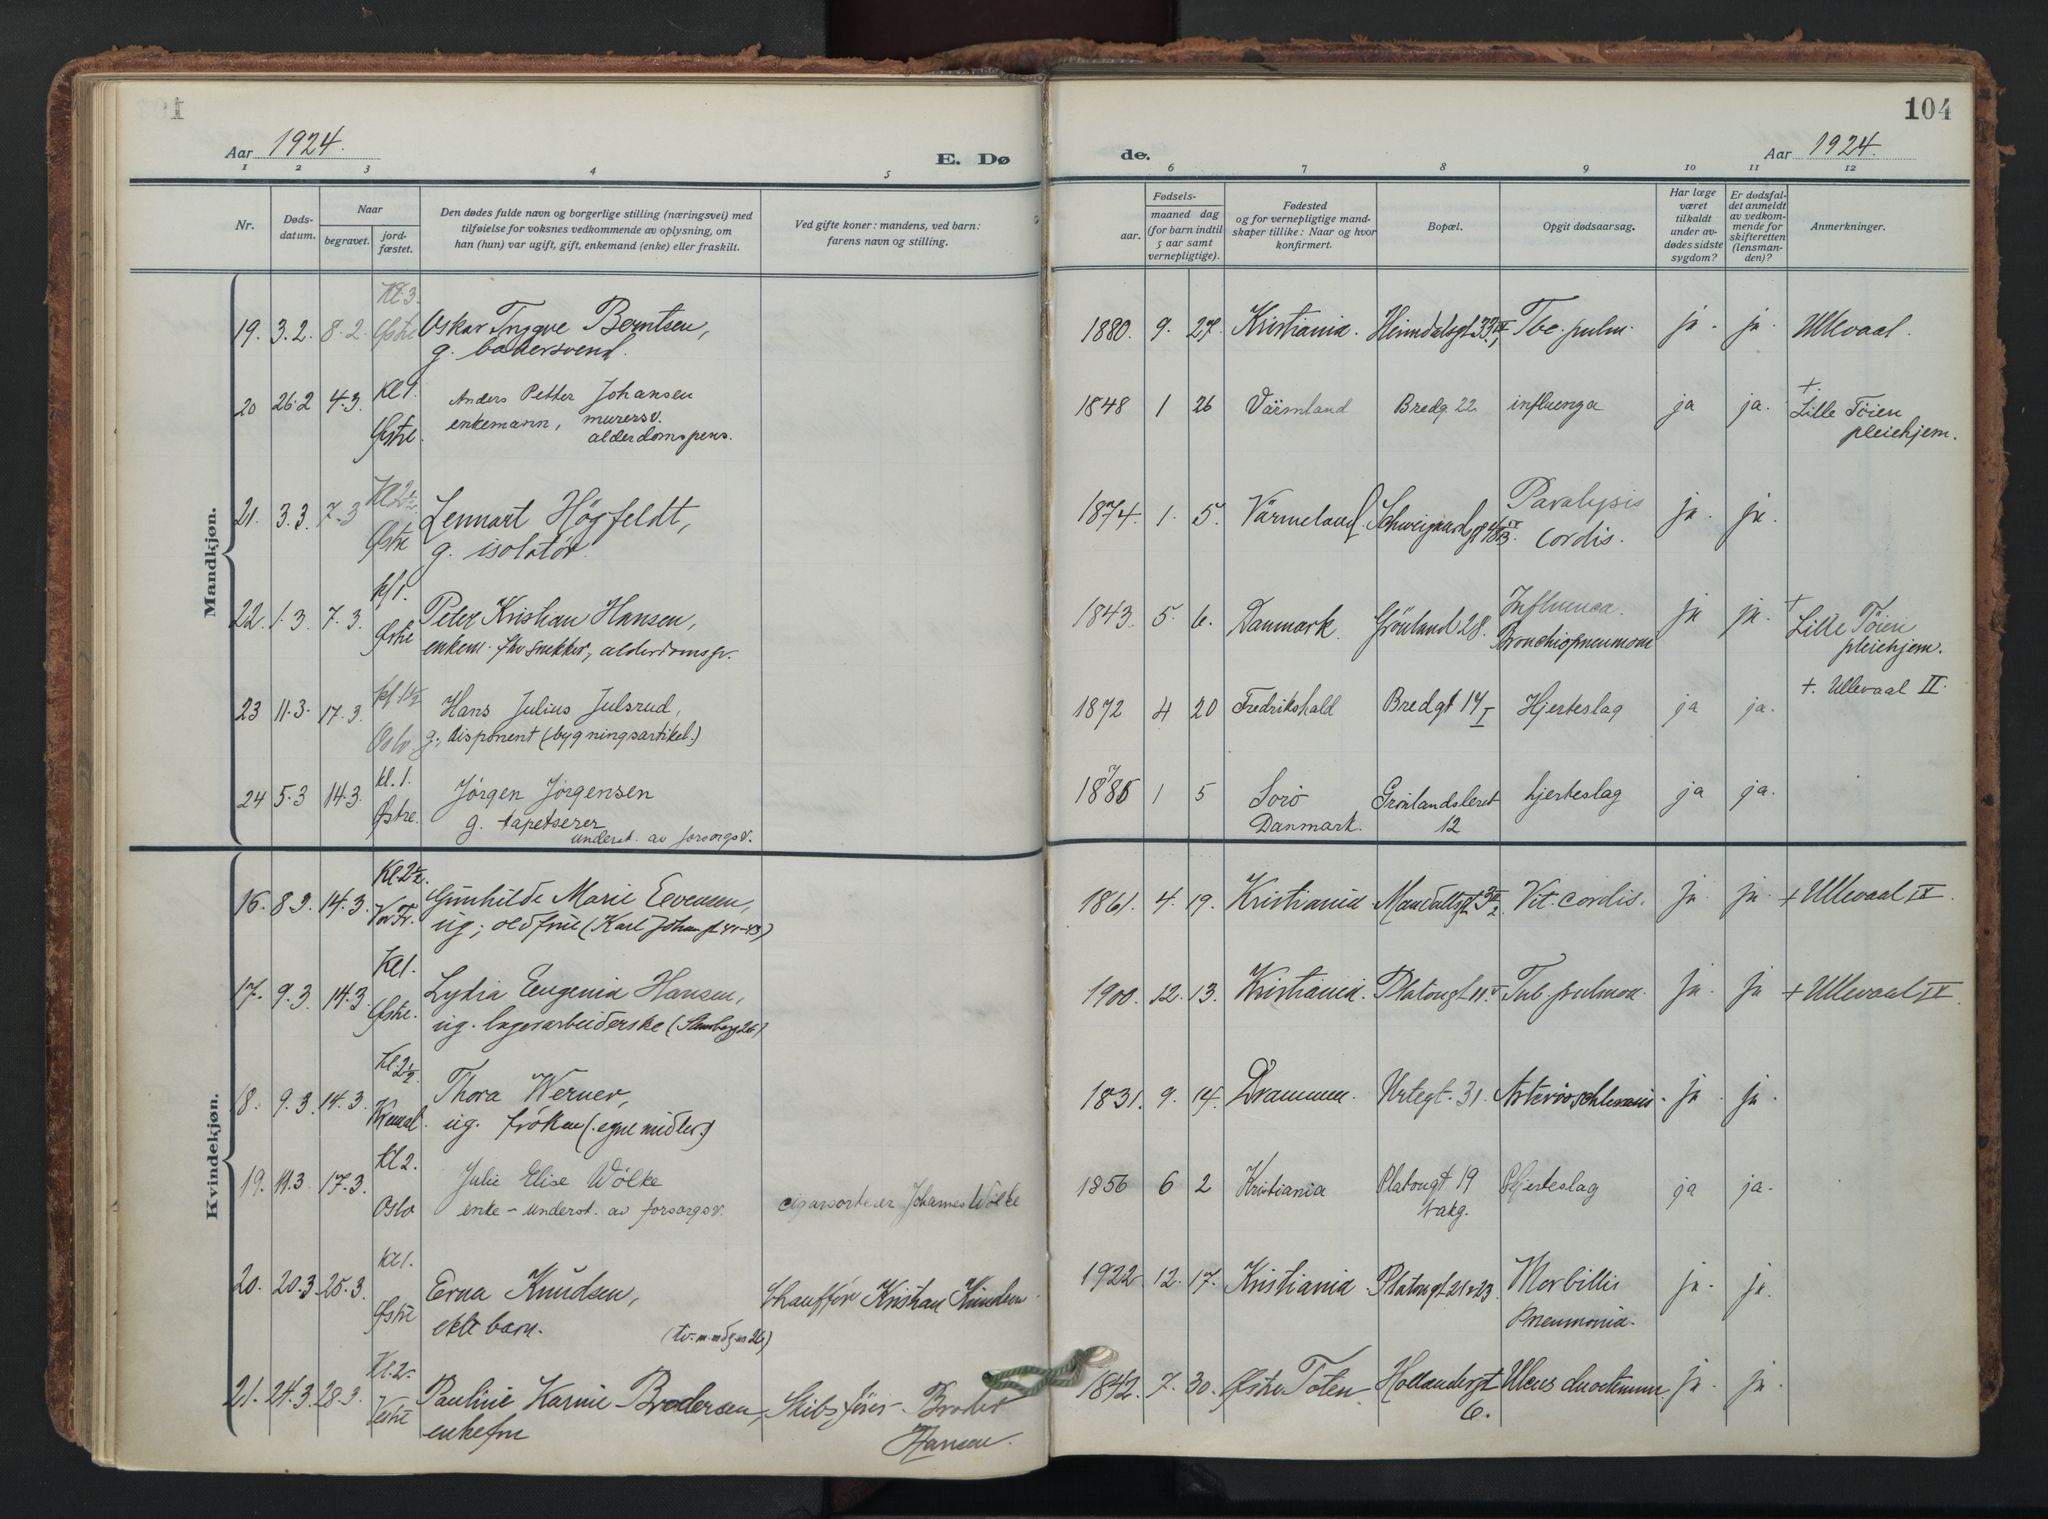 104
Aar 1924.
E. Dø
de.
Aar 1924.
1 2 3 4 5 6 7 8 9 10 11 12
Nr.
Døds-
datum.
Naar
begravet.
jord-
fæstet.
Den dødes fulde navn og borgerlige stilling (næringsvei) med
tilføielse for voksnes vedkommende av oplysning, om
han (hun) var ugift, gift, enkemand (enke) eller fraskilt.
Ved gifte koner: mandens, ved barn:
farens navn og stilling.
Fødsels-
aar.
maaned dag
(for barn indtil
5 aar samt
vernepligtige).
Fødested
og for vernepligtige mand-
skaper tillike: Naar og hvor
konfirmert.
Bopæl.
Opgit dødsaarsag.
Har læge
været
tilkaldt
under av-
dødes sidste
sygdom?
Er dødsfal-
det anmeldt
av vedkom-
mende for
skifteretten
(lensman-
den)?
Anmerkninger.
Mandkjøn.
Kl 3.
19. 3.2. 8.2. Østre Oskar Tryggve Berntsen, 1880. 9. 27. Kristiania. Heimdalsgt 33 IV, Tbc. pulm. ja. ja. Ullevaal.
g. bakersvend.
Kl 1.
20 26.2 4.3. Østre. Anders Petter Johansen 1848 1 26 Värmland Bredg. 22 influenza ja ja. + Lille Tøien
enkemann, murersv. pleiehjem.
alderdomspens.
Kl 2½.
21. 3.3. 7.3 Østre Lennart Högfeldt, 1874. 1. 5. Värmeland. Schweigaardsgt Paralysis ja. ja.
g. isolatör. cordis.
kl 1.
22. 1.3 7.3. Østre Peter Kristian Hansen, 1843. 5. 6. Danmark. Grönland 28. Influenca. ja ja. + Lille Tøien
enkem. fhv snekker, alderdomsp. Bronchiopneumoni pleiehjem.
kl. 1½
23 11.3. 17.3. Oslo Hans Julius Julsrud, 1872 4 20 Fredrikshald Bredgt 14 I Hjerteslag ja ja. +. Ullevaal II.
g., disponent (bygningsartikel.)
kl. 1.
24 5.3 14.3. Østre. Jørgen Jørgensen 1 5 Sorö Grønlandsleret hjerteslag ja ja.
g. tapetserer Danmark. 12
underst. av forsorgsv.
Kvindekjøn.
Kl. 2½.
16. 8.3. 14.3. Vor Fr. Gunhilde Marie Evensen, 1861. 4. 19. Kristiania. Vit. cordis. ja. ja. + Ullevaal IX.
ug; oldfrue (Karl Johansgt 41-43)
Kl 1.
17. 9.3 14.3. Østre. Lydia Eugenia Hansen, 1900. 12. 13. Kristiania. Platougt 11 V Tub. pulmon. ja. ja + Ullevaal IX.
ug. lagerarbeiderske
Kl. 2½
18. 9.3. 14.3. Kremat. Thora Werner, 1831. 9. 14. Drammen. Urtegt. 31. Arterioschlerosis. ja. ja.
ug. fröken (egne midler.)
Kl 2.
19. 11.3. 17.3. Oslo Julie Elise Wölke cigarsorterer Johannes Wölke 1856 6 2 Kristiania Platougt 19 Hjerteslag ja ja.
enke - underst. av forsorgsv. bakg.
Kl 1.
20. 20.3 25.3. Østre Erna Knudsen, Chauffør Kristian Knudsen. 1922 12. 17. Kristiania Platougt 21 & 23 Morbilli ja. ja.
ekte barn. Pneumonia.
Kl. 2.
21. 24.3. 28.3. Vestre Pauline Karine Brodersen, Skibsfører Broder 1842. 7. 30. Østre Toten. Hollendergt Ulcus duodenum ja. ja.
enkefru Hansen. 6.